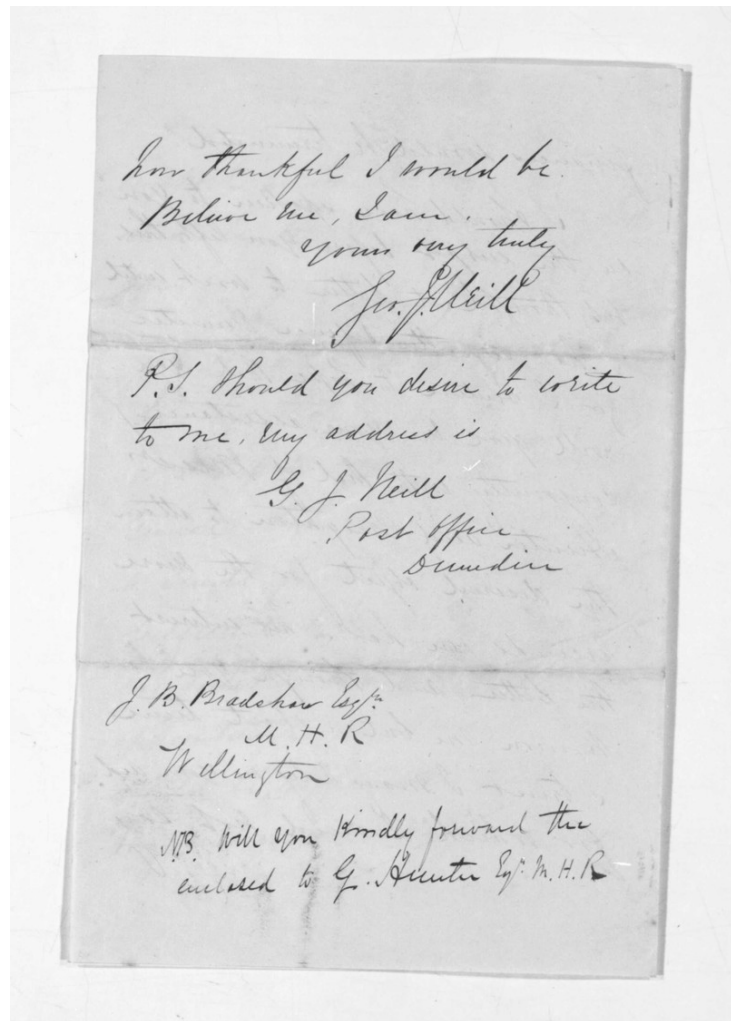 how thankful I would be.
Believe me, I am.
yours very truly
Geo. J. Neill
P.S. Should you desire to write
to me, my address is
G. J. Neill
Post Office
Dunedin
J. B. Bradshaw Esqre
M. H. R
Wellington
N.B. Will you Kindly forward the
enclosed to G. Hunter Esqr. M. H. R